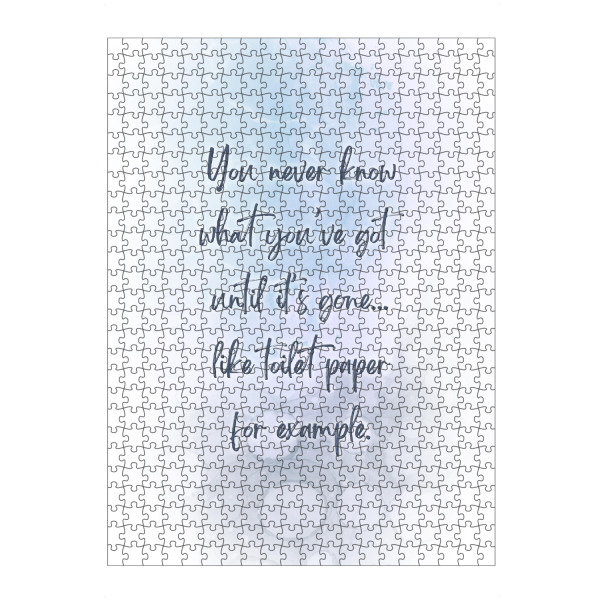 You never know
what you've got
until it's gone...
like toilet paper
for example.